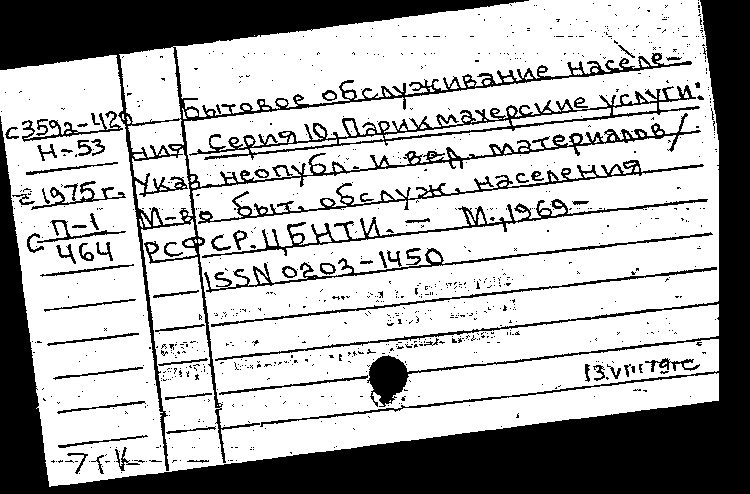 Бытовое обслуживание населе-
ния. Серия 10, Парикмахерские услуги:
Указ. неопубл. и вед. материалов /
М-во быт. обслуж. населения
РСФСР. ЦБНТИ. – М., 1969–
ISSN 0203-1450
С359а-429
Н-53
с 1975 г.
С П-1
464
13.VIII 79 ге
7 г К